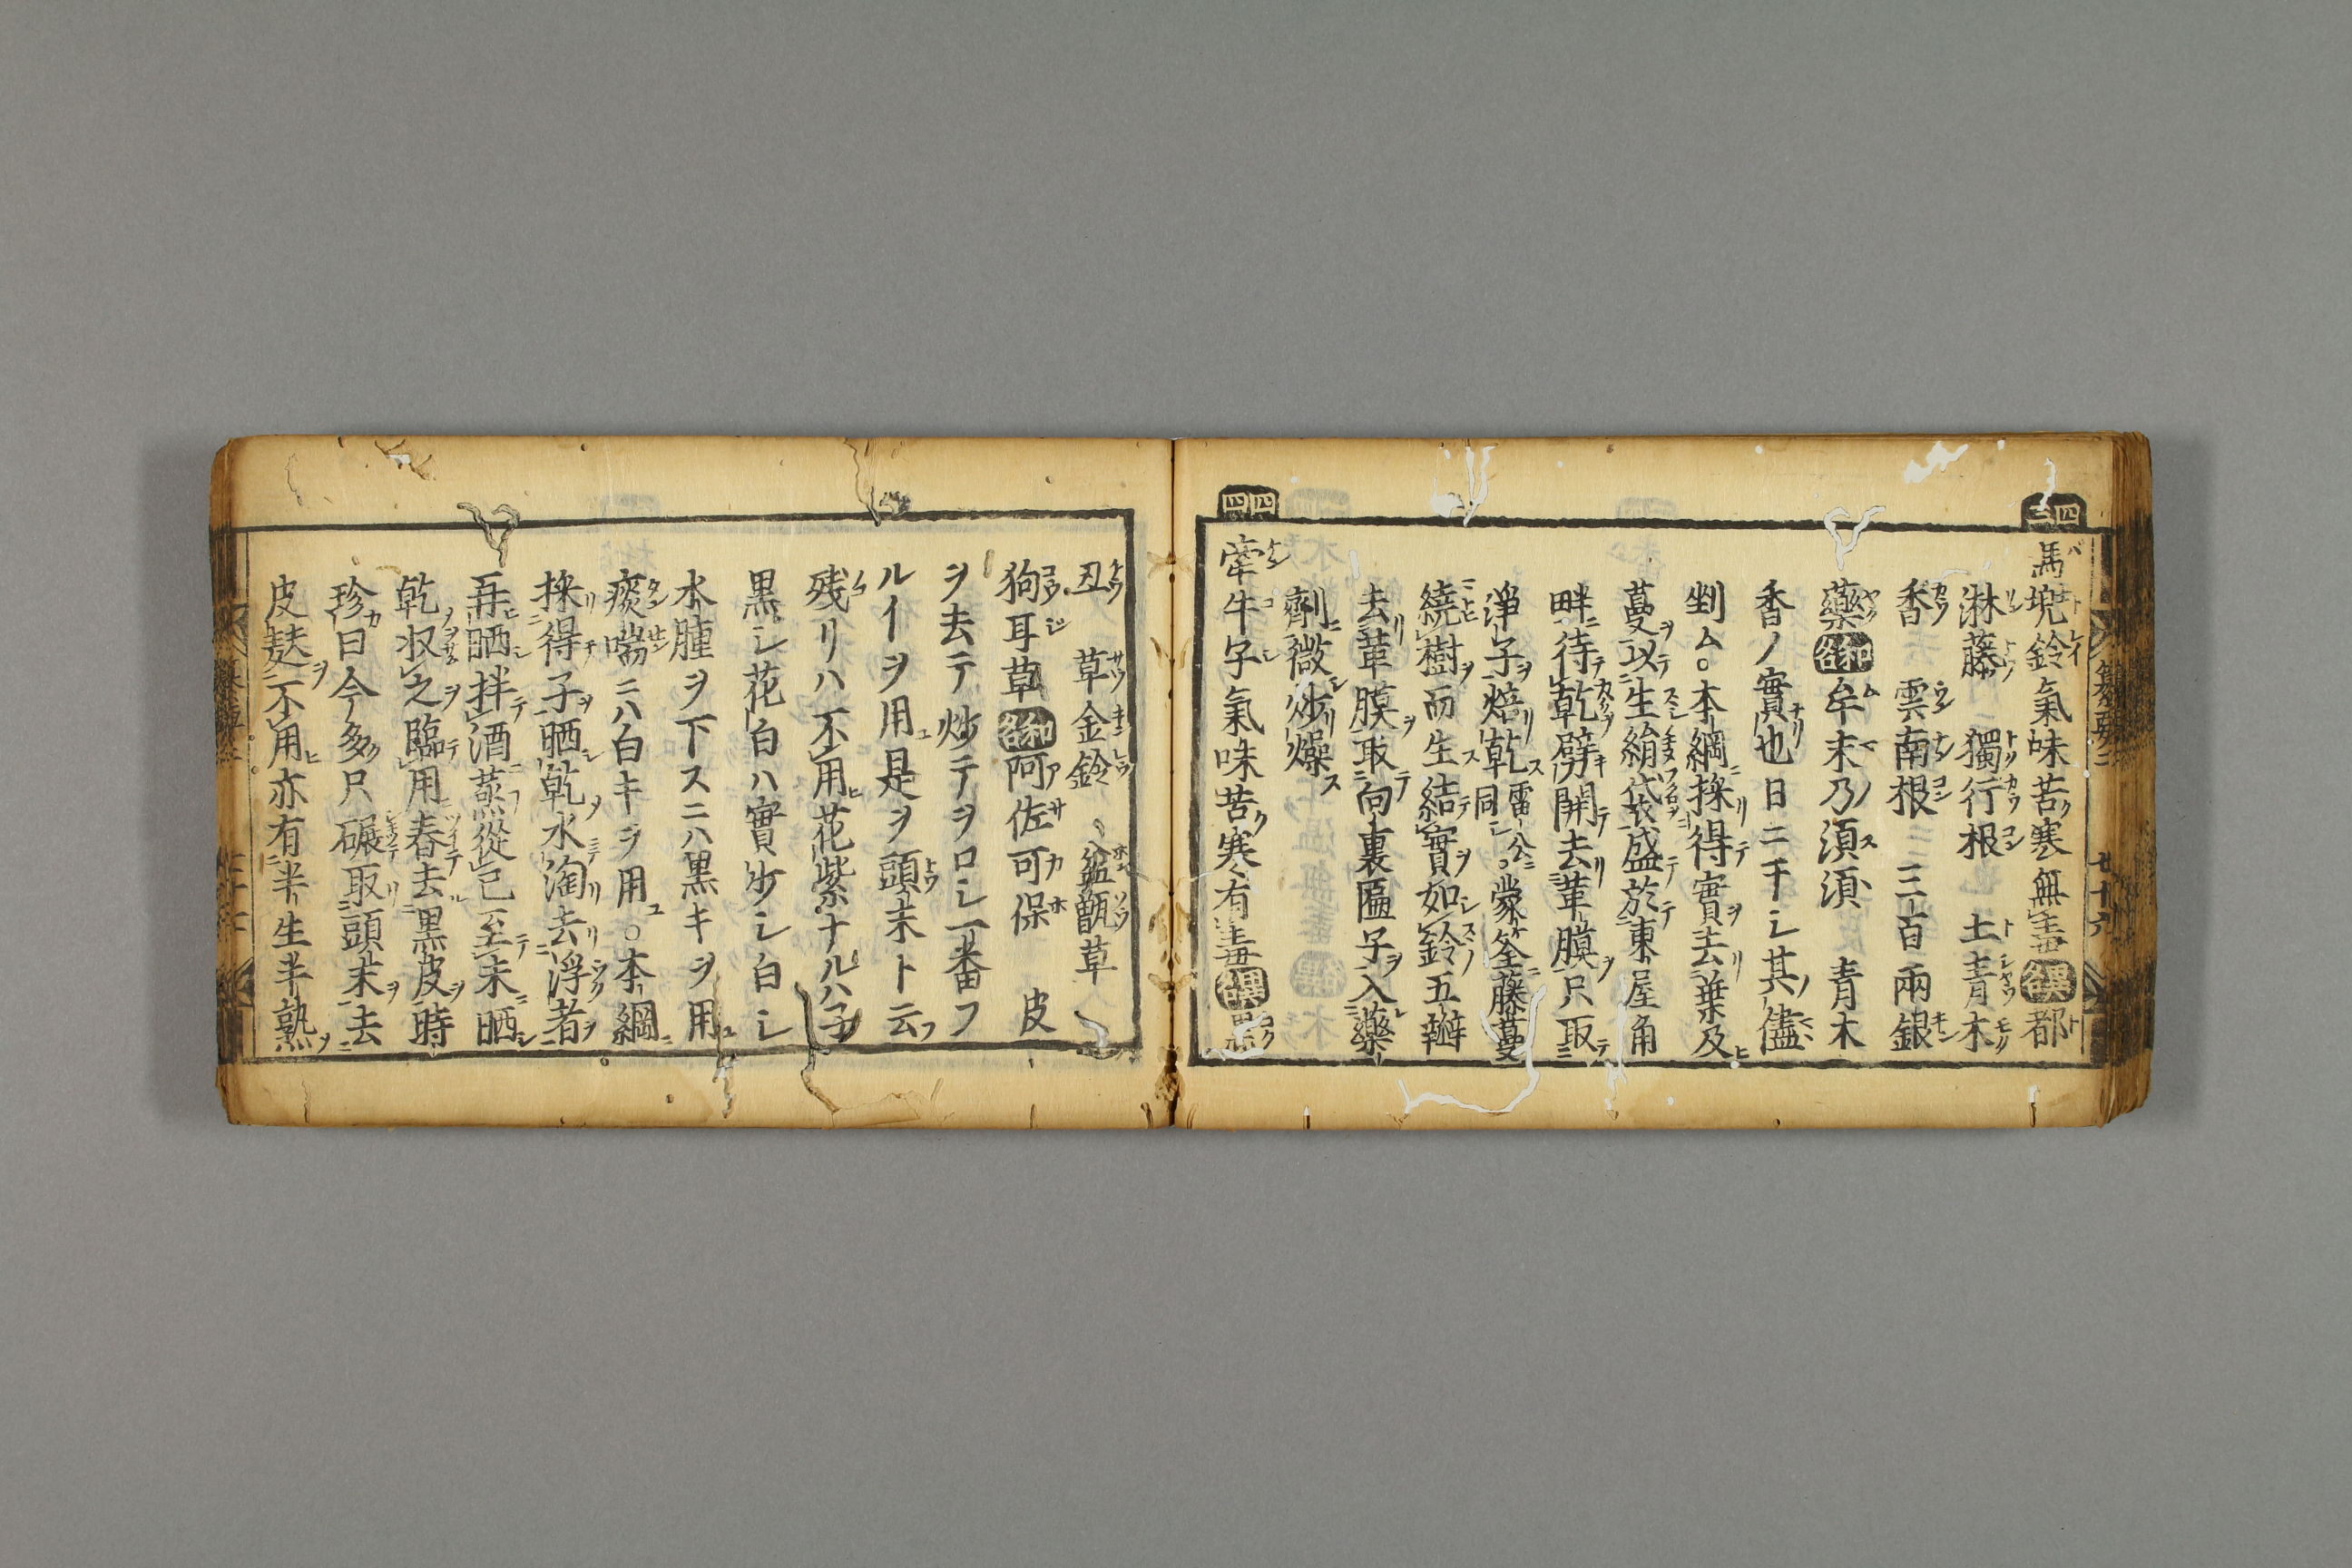 四三
馬兜鈴氣味苦寒無毒 異名 都
淋藤 獨行根 土青木
香 雲南根 三百兩銀
藥 和名 牟末乃須須 青木
香ノ實也日ニ干シ其儘
剉ム○本綱採得實去葉及
蔓以生絹袋盛於東屋角
畔待乾劈開去革膜只取
淨子焙乾 雷公同 ○蒙筌藤蔓
繞樹而生結實如鈴五瓣
去革膜取向裏匾子入藥
劑微炒燥
四四
牽牛子氣味苦寒有毒 異名 黑
丑 草金鈴 盆甑草
狗耳草 和名 阿佐可保 皮
ヲ去テ炒テヲロシ一番フ
ルイヲ用是ヲ頭末ト云
残リハ不用花紫ナルハ子
黒シ花白ハ實少シ白シ
水腫ヲ下スニハ黒キヲ用
痰喘ニハ白キヲ用○本綱
採得子晒乾水淘去浮者
再晒拌酒蒸從巳至未晒
乾収之臨用舂去黒皮時
珍曰今多只碾取頭末去
皮麩不用亦有半生半熟